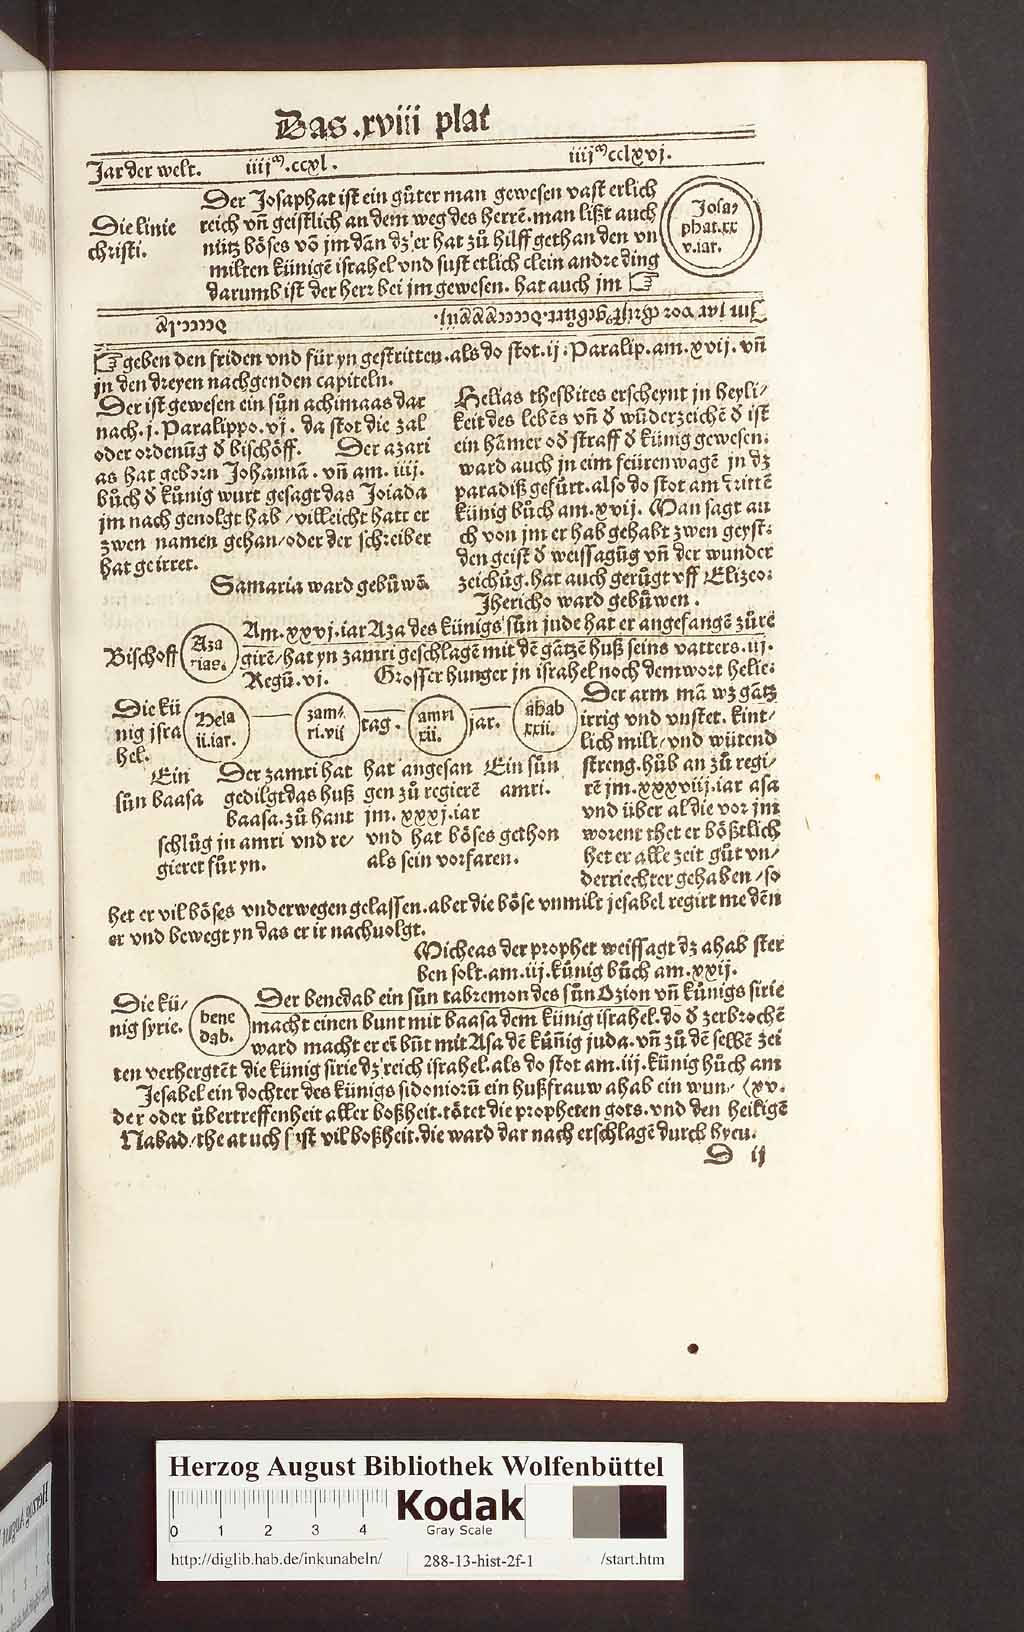 Das .xviii plat
Jar der welt. iiijᵐ.ccxl. iiijᵐcclxvj.
Die linie
christi.
Der Josaphat ist ein gůter man gewesen vast erlich
reich vñ geistlich an dem weg des herrẽ. man lißt auch
nütz böses võ jm dãn dz er hat zů hilff gethan den vn
milten künigẽ israhel vnd sust etlich clein andre ding
darumb ist der herr bei jm gewesen. hat auch jm ☞
Josa⸗
phat.xx
v.iar.
Jm iar vor christ gebůrt
☞ geben den friden vnd für yn gestritten. als do stot. ij. Paralip. am. xvij. vñ
jn den dreyen nachgenden capiteln.
Der ist gewesen ein sůn achimaas dar
nach. j. Paralippo. vj. da stot die zal
oder ordenũg đ bischöff. Der azari
as hat geborn Johannã. vñ am. iiij.
bůch đ künig wurt gesagt das Joiada
jm nach genolgt hab / villeicht hatt er
zwen namen gehan / oder der schreiber
hat geirret.
Samaria ward gebůwẽ
Helias thesbites erscheynt jn heyli⸗
keit des lebẽs vñ đ wũderzeichẽ đ ist
ein hãmer od straff đ künig gewesen.
ward auch jn eim feürenwagẽ jn dz
paradiß gefůrt. also do stot am drittẽ
künig bůch am. xvij. Man sagt au
ch von jm er hab gehabt zwen geyst.
den geist đ weissagũg vñ der wunder
zeichũg. hat auch gerůgt vff Elizeo.
Jhericho ward gebůwen.
Bischoff
Aza
riae.
Am. xxvj. iar Aza des künigs sůn jude hat er angefangẽ zůre
girẽ / hat yn zamri geschlagẽ mit dẽ gãtzẽ huß seins vatters. iij.
Regũ. vj. Grosser hunger jn israhel noch dem wort helie.
Die kü
nig jsra
hel.
Hela
ii.iar.
zam⸗
ri.vii
tag.
amri
xii.
jar.
ahab
xxii.
Ein
sůn baasa
Der zamri hat
gedilgt das huß
baasa. zů hant
schlůg jn amri vnd re⸗
gieret für yn.
hat angesan
gen zů regierẽ
jm. xxxj. iar
vnd hat böses gethon
als sein vorfaren.
Ein sůn
amri.
Der arm mã wz gãtz
irrig vnd vnstet. kint⸗
lich milt / vnd wütend
streng. hůb an zů regi⸗
rẽ jm. xxxviij. iar asa
vnd über al die vor jm
worent thet er bößtlich
het er alle zeit gůt vn⸗
derriechter gehaben / so
het er vil böses vnderwegen gelassen. aber die böse vnmilt jesabel regirt me dẽn
er vnd bewegt yn das er ir nachuolgt.
Micheas der prophet weissagt dz ahab ster
ben solt. am. iij. künig bůch am. xxij.
Die kü⸗
nig syrie.
bene
dab.
Der benedab ein sůn tabremon des sůn Ozion vñ künigs sirie
macht einen bunt mit baasa dem künig israhel. do đ zerbrochẽ
ward macht er eĩ bũt mit Asa dẽ künig juda. vñ zů dẽ selbẽ zei
ten verhergtẽt die künig sirie dz reich israhel. als do stot am. iij. künig bůch am
Jesabel ein dochter des künigs sidoniorũ ein hußfrauw ahab ein wun⸗ (xv.
der oder übertreffenheit aller boßheit. tötet die propheten gots. vnd den heiligẽ
Nabad / the at uch sust vil boßheit. die ward dar nach erschlagẽ durch hyeu.
D ij
Herzog August Bibliothek Wolfenbüttel
0 1 2 3 4
Kodak
Gray Scale
http://diglib.hab.de/inkunabeln/ 288-13-hist-2f-1 /start.htm